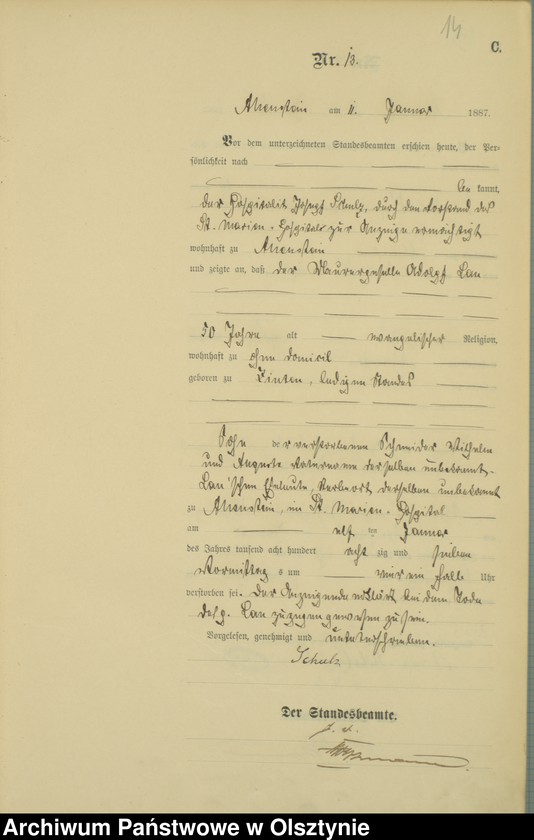 14
C.
Nr. 13.
Allenstein am 11. Januar 1887.
Vor dem unterzeichneten Standesbeamten erschien heute, der Per-
sönlichkeit nach
kannt,
der Hospitalit Josef Schulz, durch den Vorstand des
St. Marien-Hospitals zur Anzeige ermächtigt
wohnhaft zu Allenstein
und zeigte an, daß der Maurergeselle Adolph Lau
50 Jahre alt evangelischer Religion,
wohnhaft zu ohne Domicil
geboren zu Zinten, ledigen Standes
Sohn der verstorbenen Schneider Wilhelm
und Auguste Vatername derselben unbekannt-
Lau'schen Eheleute, Sterbeort derselben unbekannt
zu Allenstein, im St. Marien-Hospital
am elf ten Januar
des Jahres tausend acht hundert acht zig und sieben
Vormittags um ein halb Uhr
verstorben sei. Der Anzeigende erklärt bei dem Tode
des p. Lau zugegen gewesen zu sein.
Vorgelesen, genehmigt und unterschrieben.
Schulz
Der Standesbeamte.
Archiwum Państwowe w Olsztynie